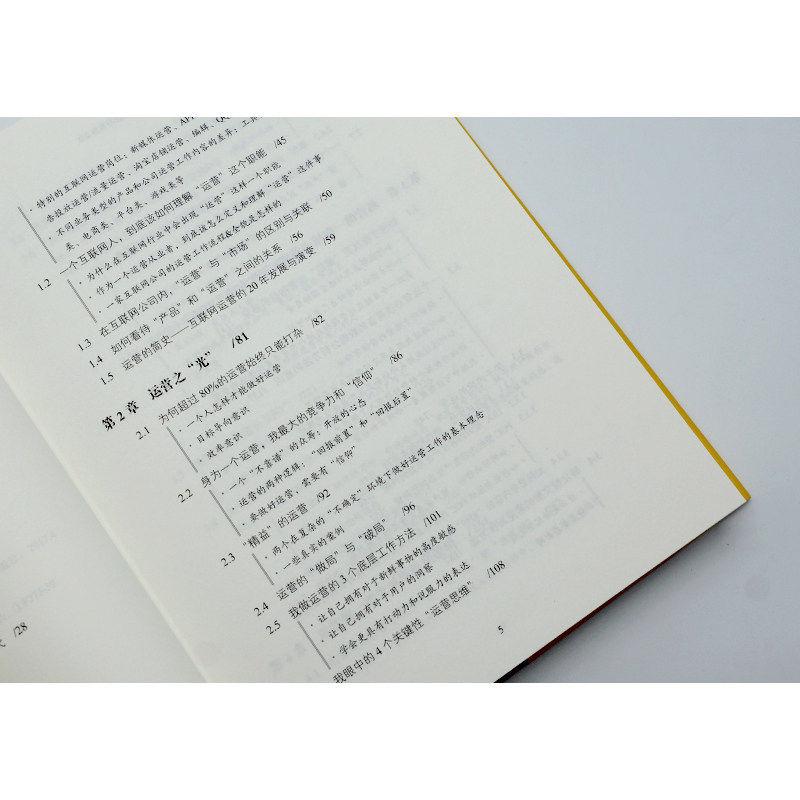 特别的互联网运营岗位：新媒体运营、AP
告投放运营/流量运营、淘宝店铺运营、编辑、QQ
· 不同业务类型的产品和公司运营工作内容的差异：工具
类、电商类、平台类、游戏类等
1.2 一个互联网人，到底该如何理解“运营”这个职能 /45
· 为什么在互联网行业中会出现“运营”这样一个职能
· 作为一个运营从业者，到底该怎么定义和理解“运营”这件事
· 一家互联网公司的运营工作流程&全貌是怎样的
1.3 在互联网公司内，“运营”与“市场”的区别与关联 /50
1.4 如何看待“产品”和“运营”之间的关系 /56
1.5 运营的简史——互联网运营的20年发展与演变 /59
第2章 运营之“光” /81
2.1 为何超过80%的运营始终只能打杂 /82
· 一个人怎样才能做好运营
· 目标导向意识
· 效率意识
2.2 身为一个运营，我最大的竞争力和“信仰” /86
· 一个“不靠谱”的众筹：开放的心态
· 运营的两种逻辑：“回报前置”和“回报后置”
· 要做好运营，需要有“信仰”
2.3 “精益”的运营 /92
· 两个在复杂的“不确定”环境下做好运营工作的基本理念
· 一些真实的案例
2.4 运营的“做局”与“破局” /96
2.5 我做运营的3个底层工作方法 /101
· 让自己拥有对于新鲜事物的高度敏感
· 让自己拥有对于用户的洞察
· 学会更具有打动力和说服力的表达
我眼中的4个关键性“运营思维” /108
5
/28